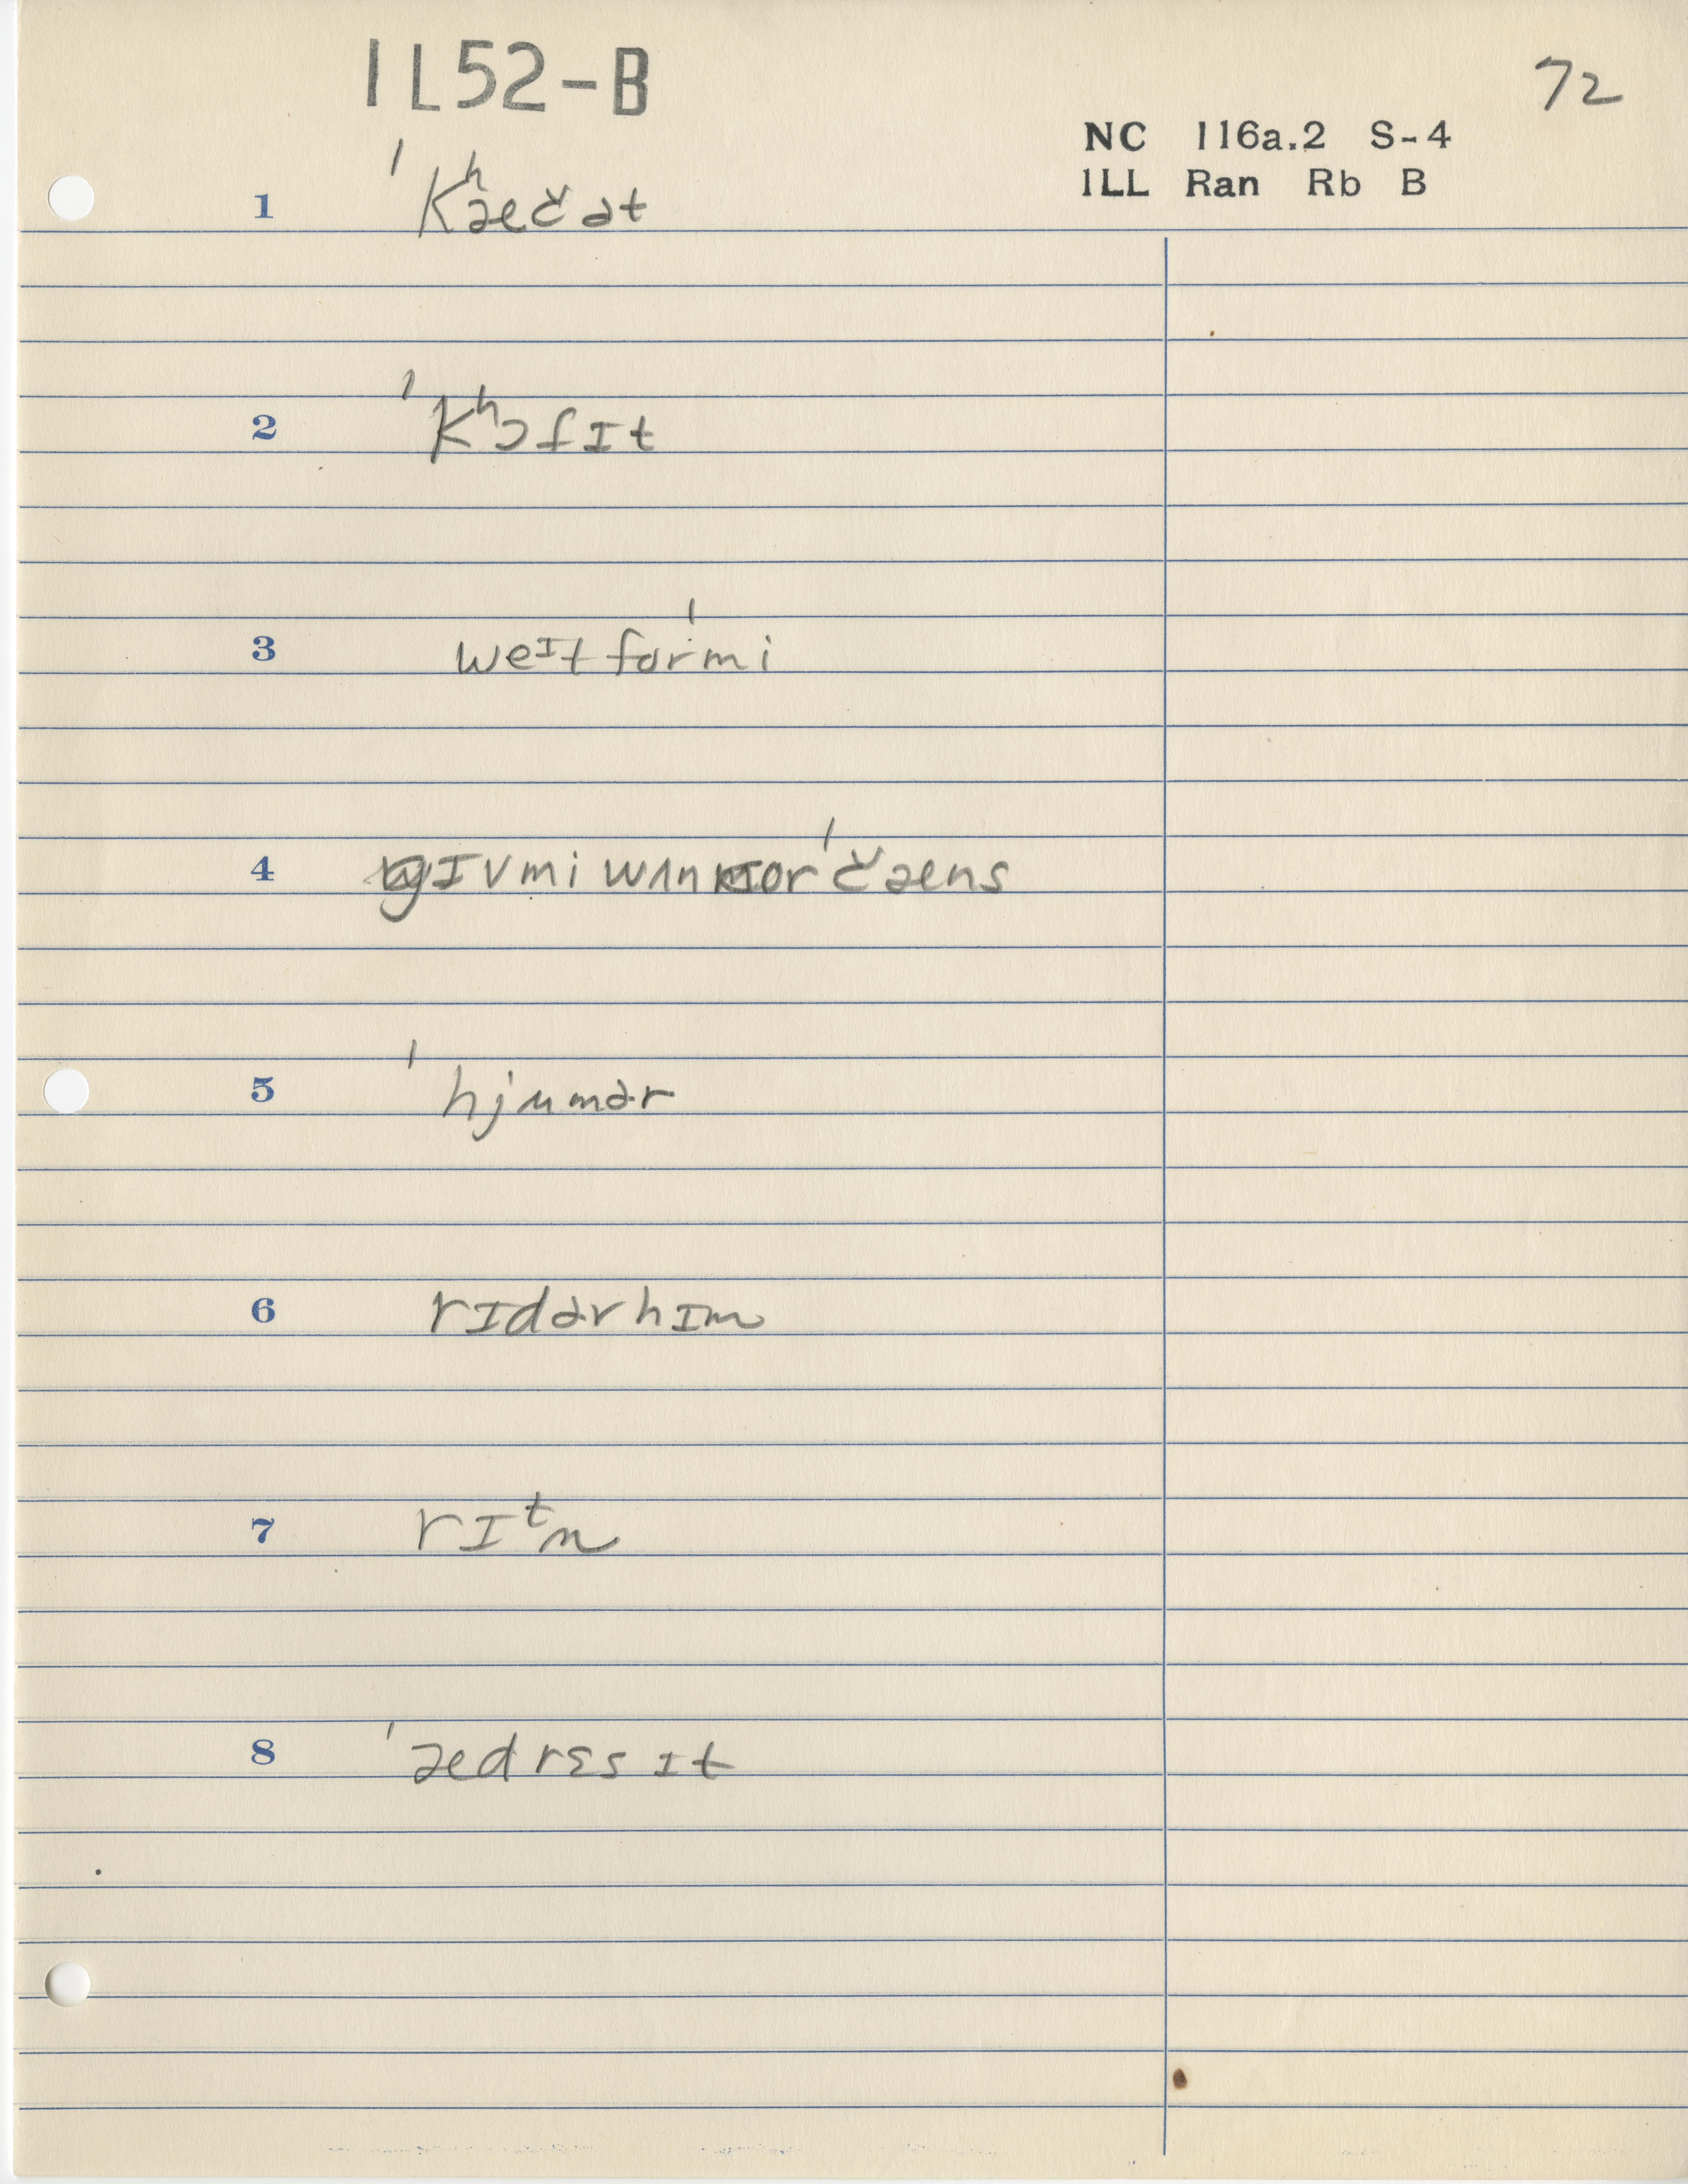 1L52-B
72
NC 116a.2 S-4
1LL Ran Rb B
1 ˈkʰæčət
2 ˈkʰɔfɪt
3 weɪt fərˈmi
4 gɪvmi wʌn mor ˈčæns
5 ˈhjumər
6 rɪdər hɪm
7 rɪᵗn
8 ˈædrɛs ɪt